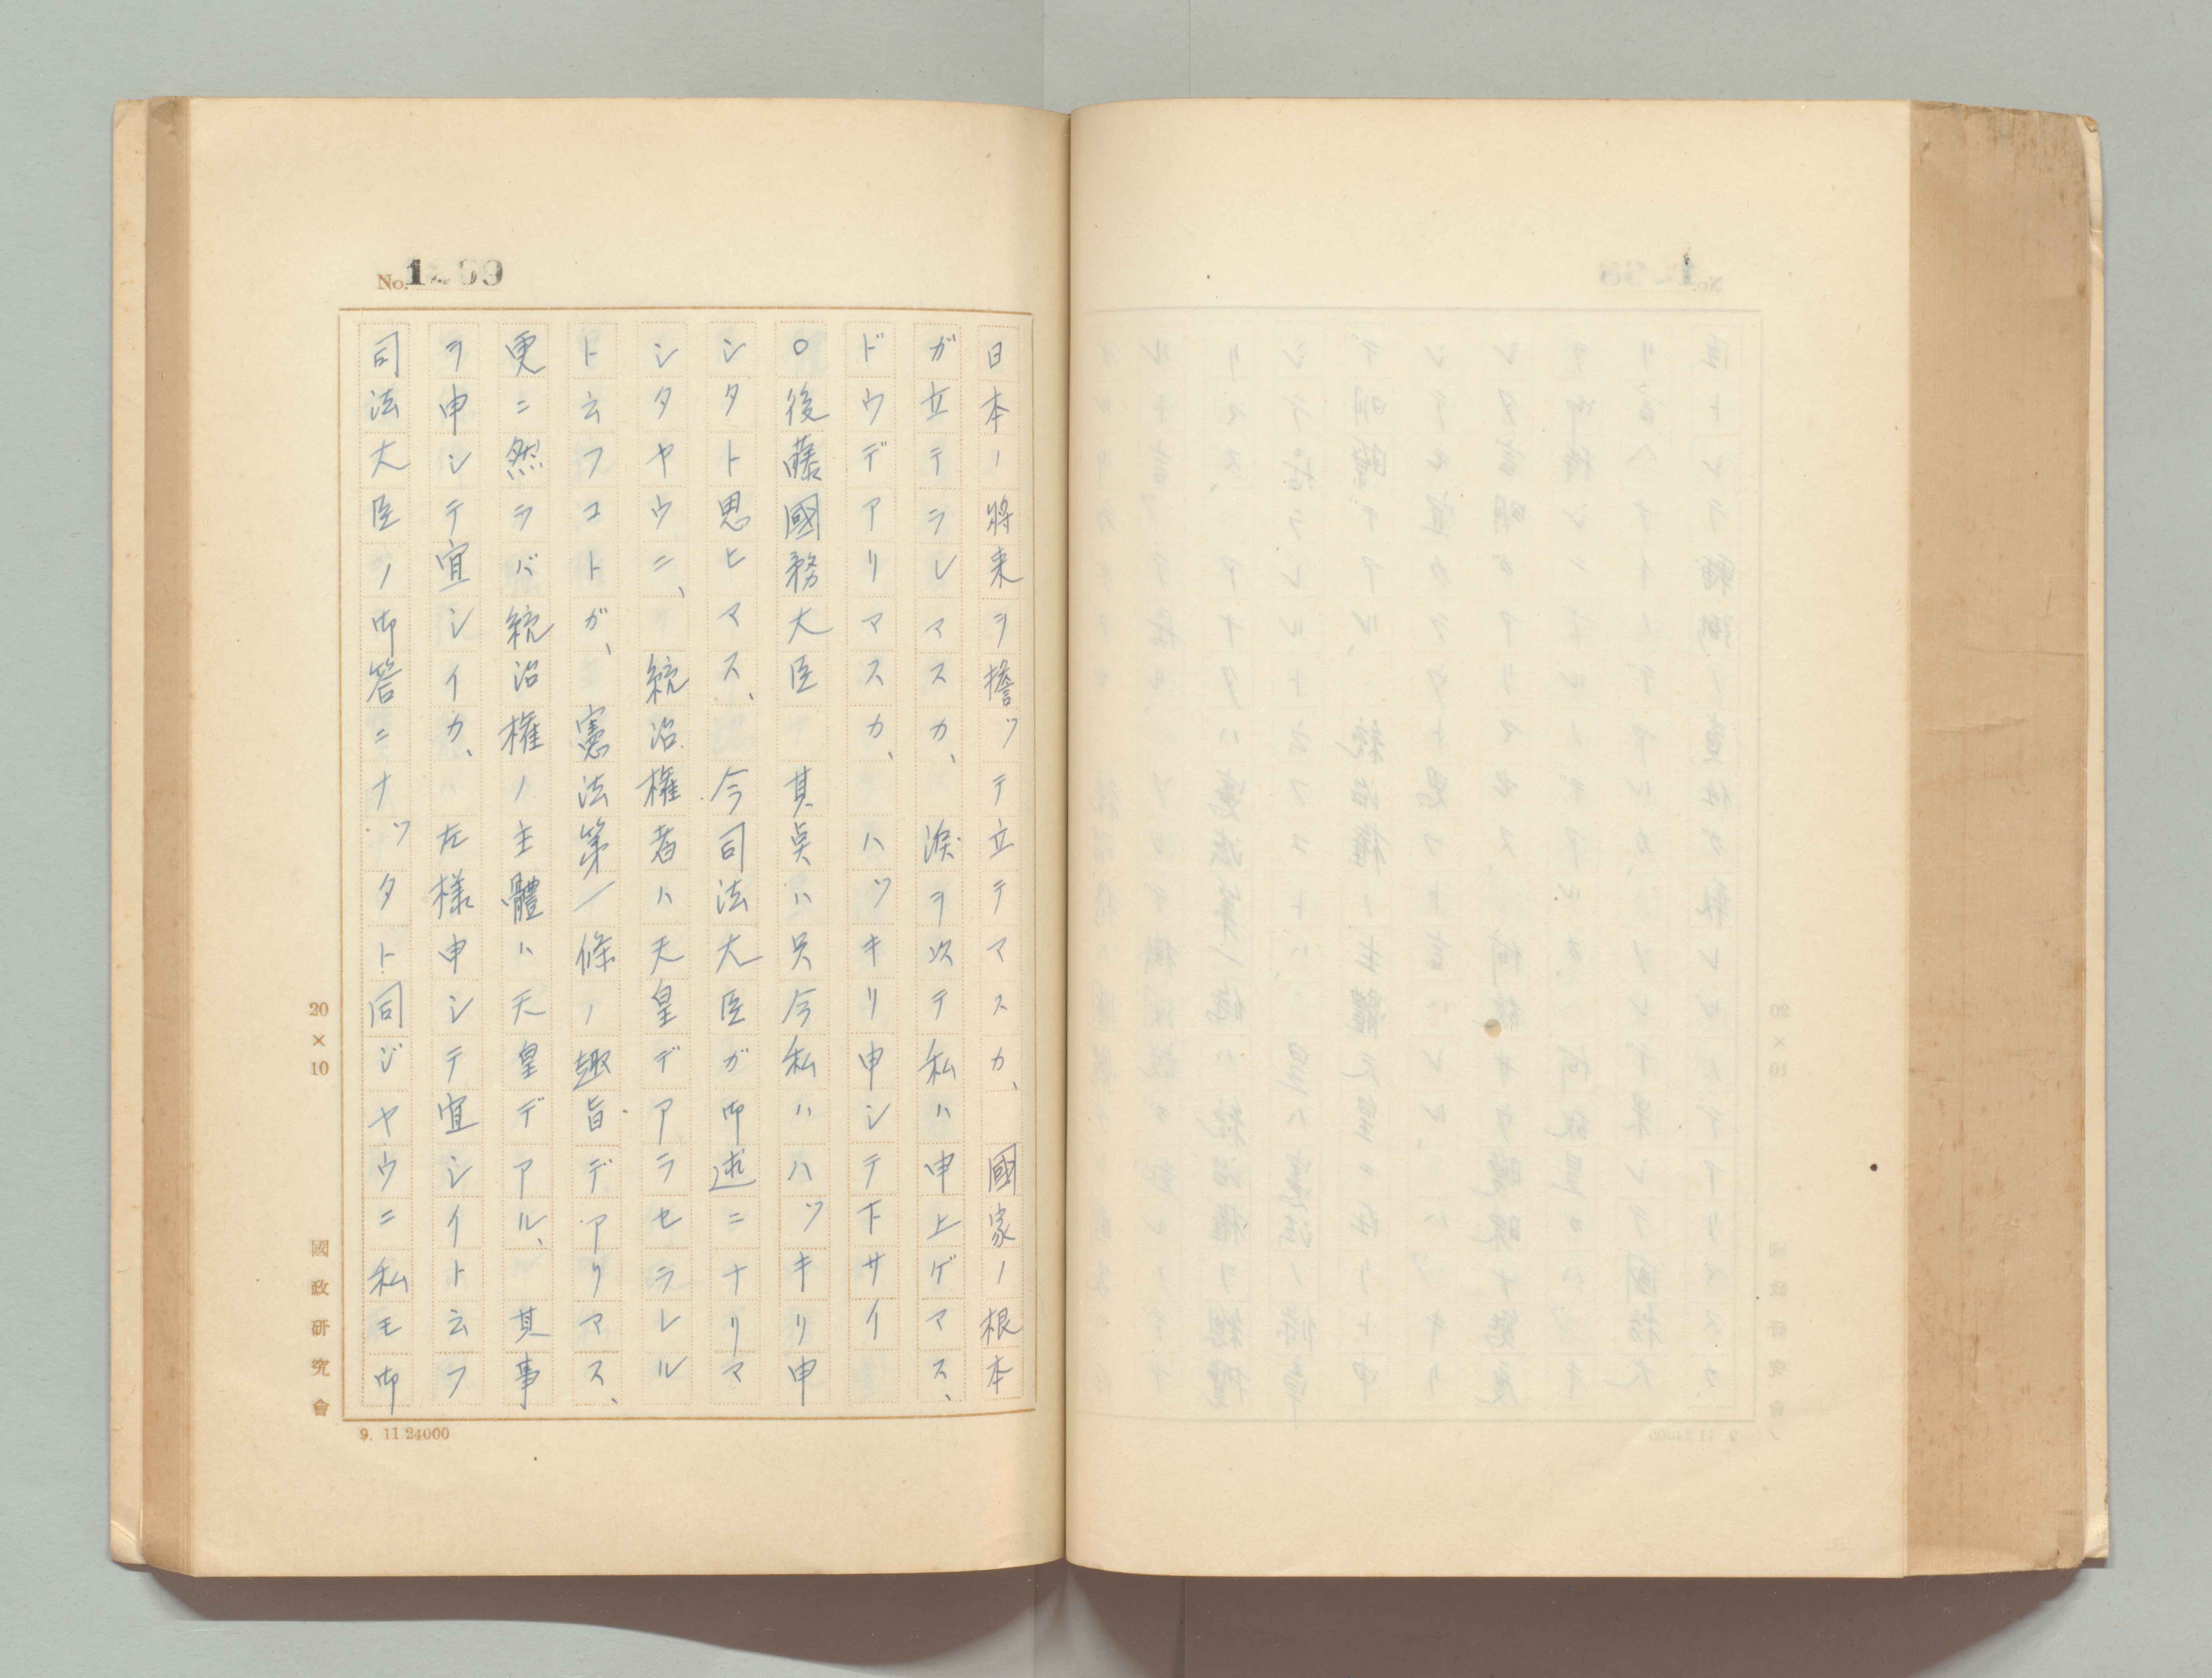 No. 1299
日本ノ將来ヲ擔ツテ立テマスカ、國家ノ根本
ガ立テラレマスカ、淚ヲ以テ私ハ申上ゲマス、
ドウデアリマスカ、ハツキリ申シテ下サイ
○後藤國務大臣 其点ハ只今私ハハツキリ申
シタト思ヒマス、今司法大臣ガ御述ニナリマ
シタヤウニ、統治権者ハ天皇デアラセラレル
ト云フコトガ、憲法第一條ノ趣旨デアリマス、
更ニ然ラバ統治権ノ主體ハ天皇デアル、其事
ヲ申シテ宜シイカ、左様申シテ宜シイト云フ
司法大臣ノ御答ニナツタト同ジヤウニ私モ御
20×10
國政研究會
9. 11 24000